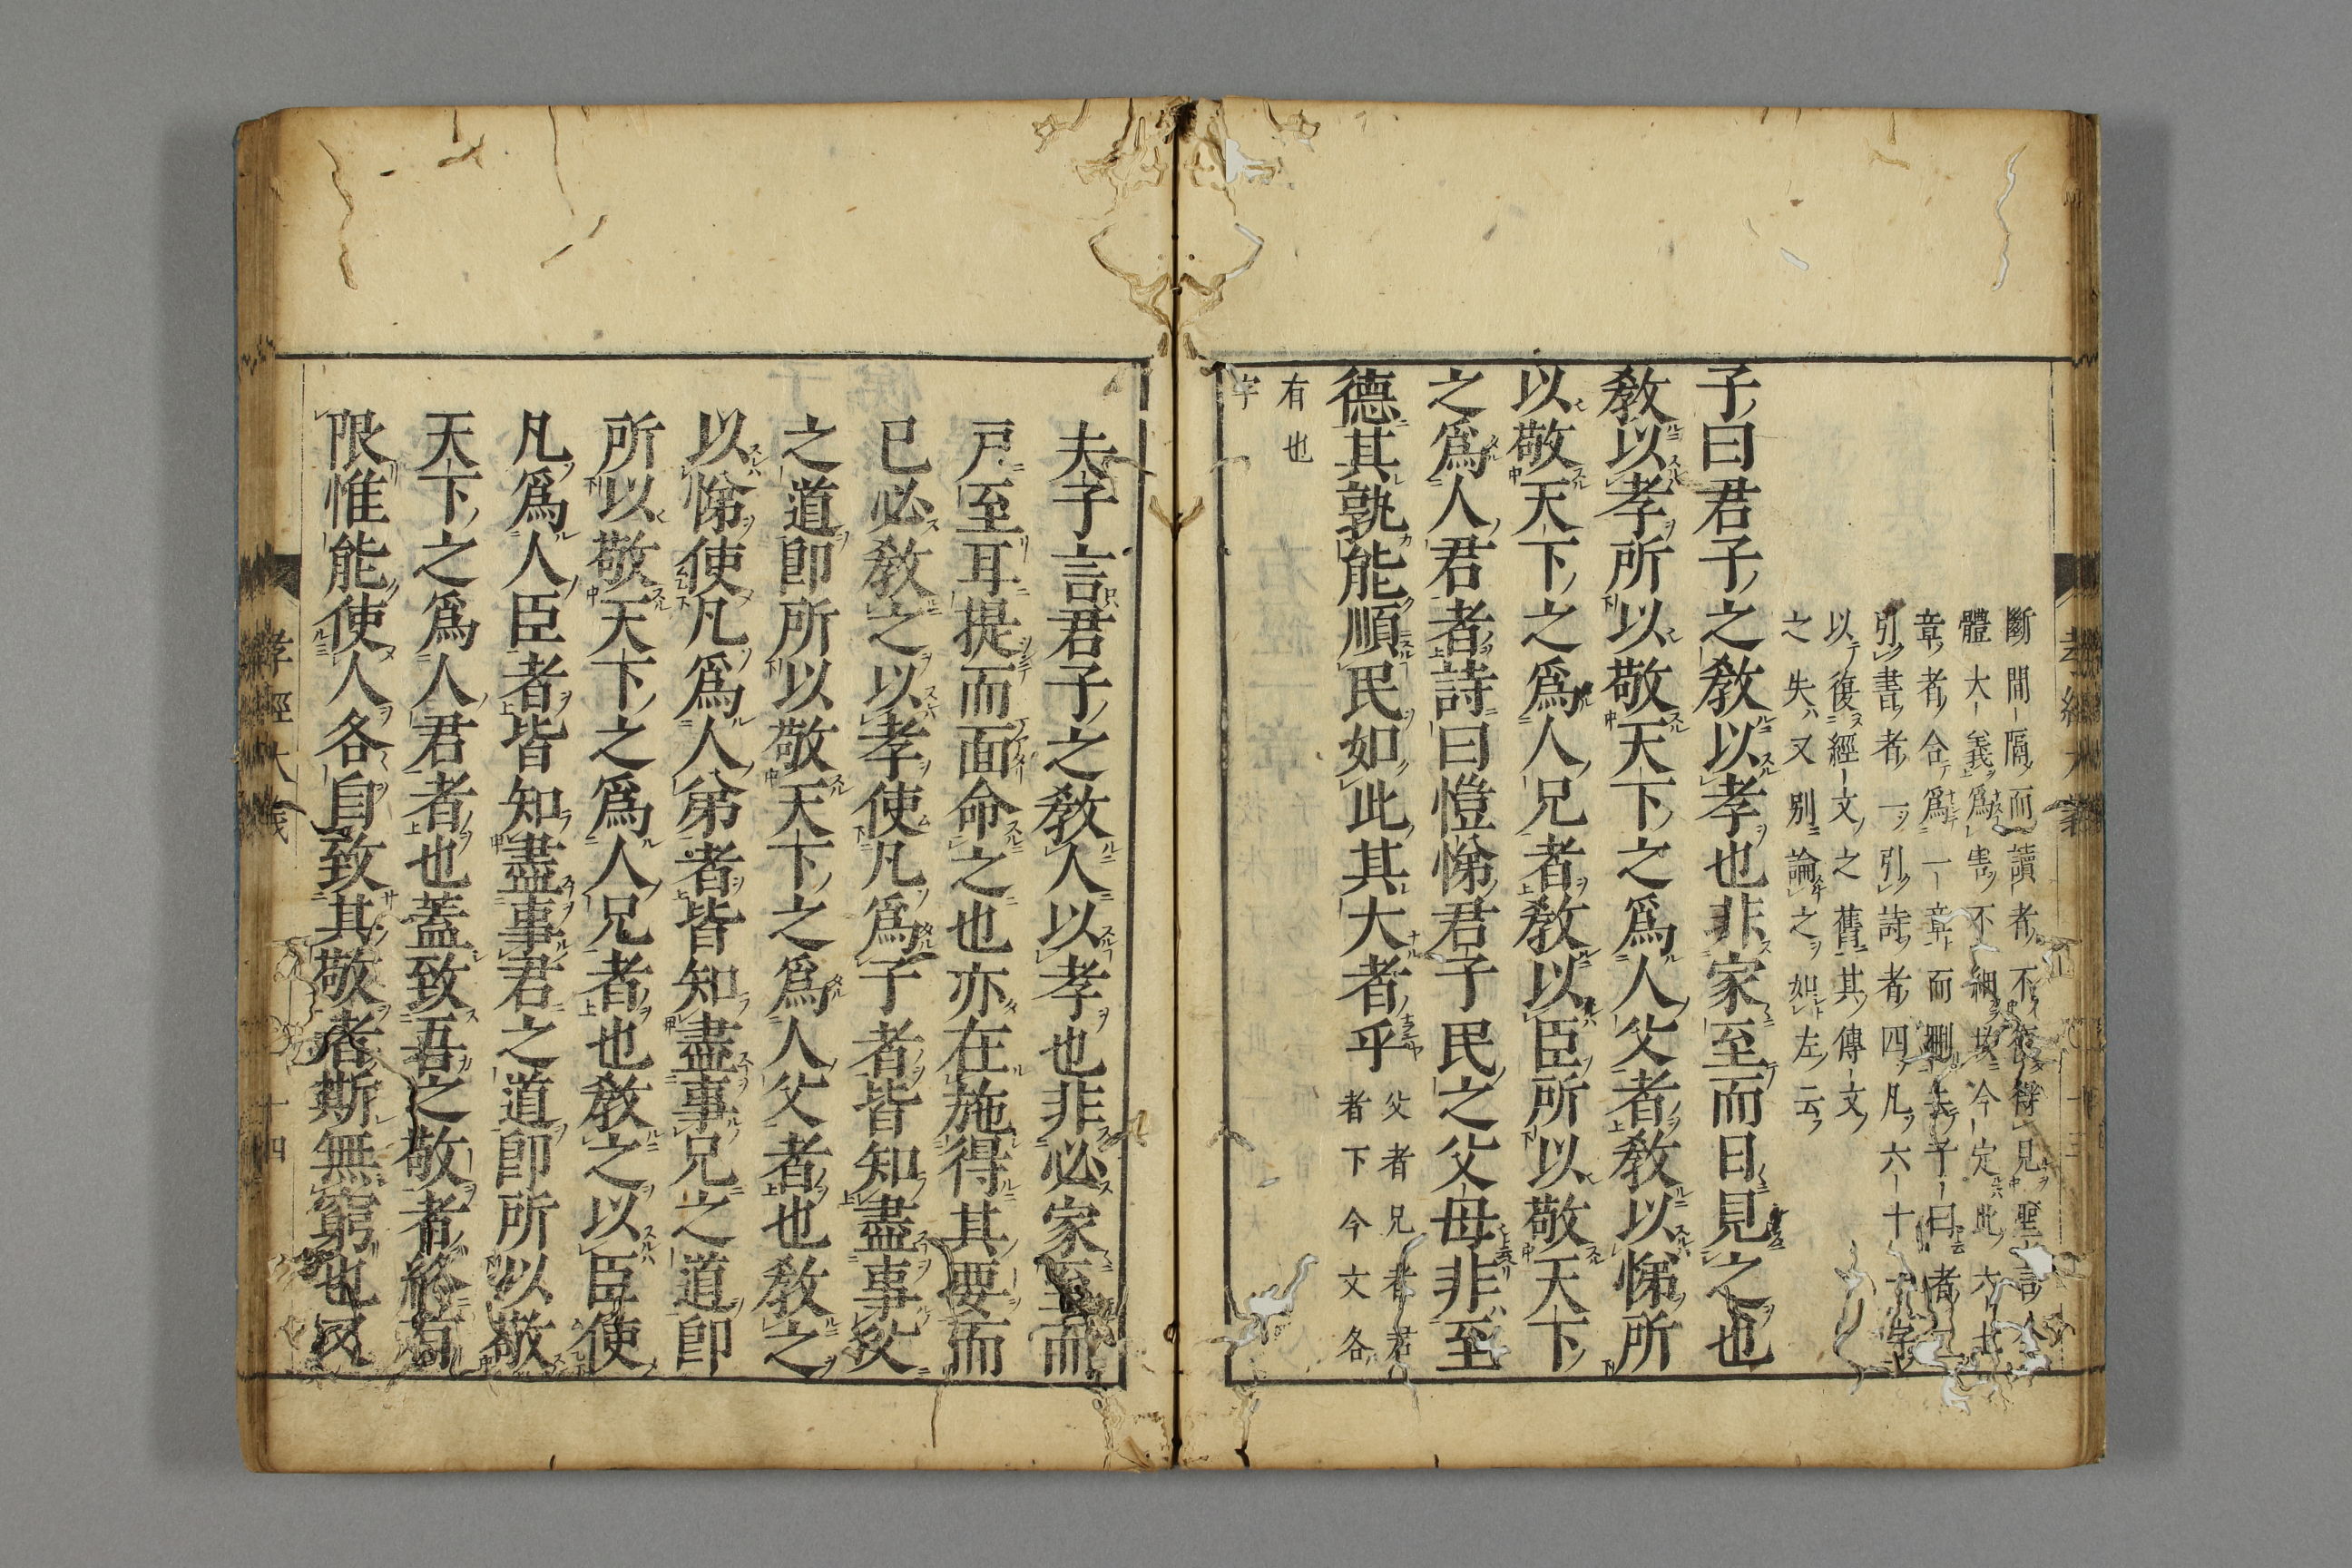 斷間隔而讀者不復得見聖言全
體大義爲害不細故今定此六七
章者合爲一章而刪去子曰者二
引書者一引詩者四凡六十一字
以復經文之舊其傳文
之失又別論之如左云
子曰君子之敎以孝也非家至而日見之也
敎以孝所以敬天下之爲人父者敎以悌所
以敬天下之爲人兄者敎以臣所以敬天下
之爲人君者詩曰愷悌君子民之父母非至
德其孰能順民如此其大者乎
父者兄者君
者下今文各
有也
字
孝經大義
夫子言君子之敎人以孝也非必家至而
戸至耳提而面命之也亦在施得其要而
已必敎之以孝使凡爲子者皆知盡事父
之道卽所以敬天下之爲人父者也敎之
以悌使凡爲人弟者皆知盡事兄之道卽
所以敬天下之爲人兄者也敎之以臣使
凡爲人臣者皆知盡事君之道卽所以敬
天下之爲人君者也蓋致吾之敬者終有
限惟能使人各自致其敬者斯無窮也又
孝經大義
十四